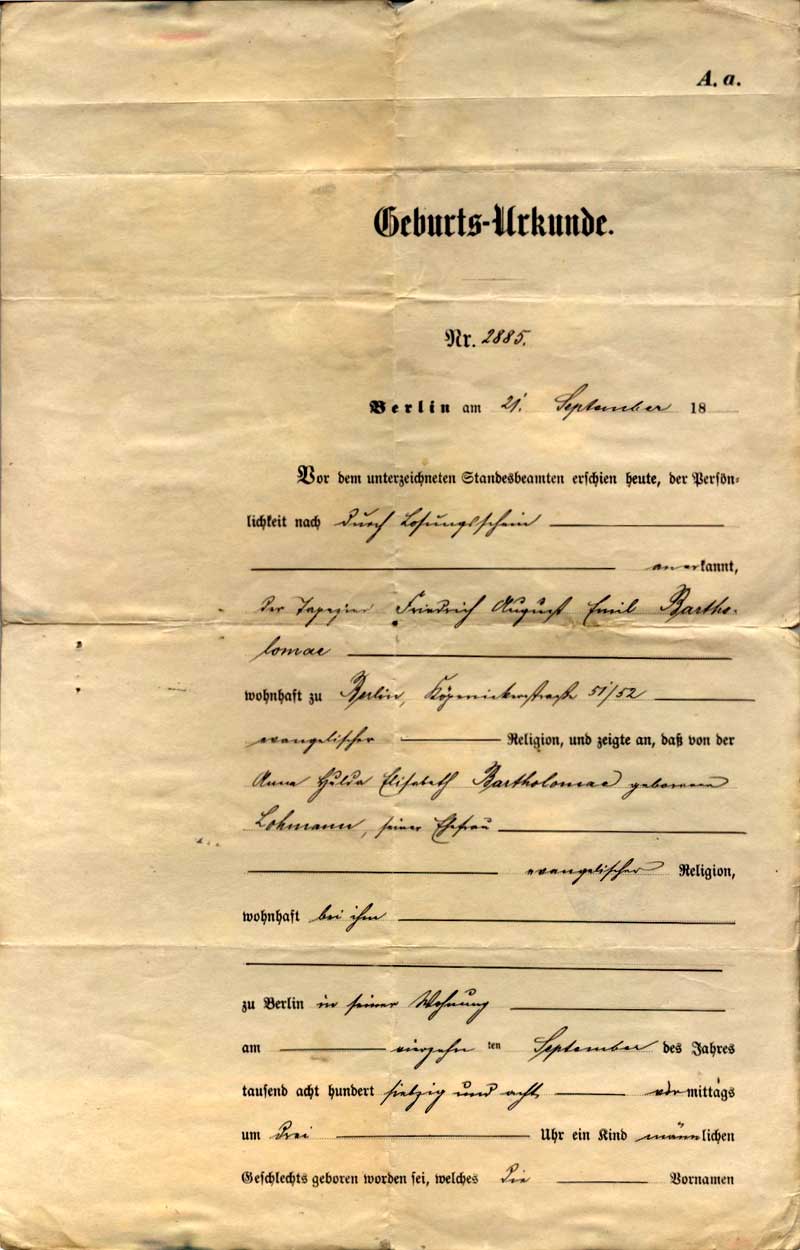 A. a.
Geburts-Urkunde.
Nr. 2885.
Berlin am 21. September 18
Vor dem unterzeichneten Standesbeamten erschien heute, der Persön-
lichkeit nach durch Losungsschein
anerkannt,
der Tapezier Friedrich August Emil Bartho-
lomae
wohnhaft zu Berlin, Köpenickerstraße 51/52
evangelischer Religion, und zeigte an, daß von der
Anna Hulda Elisabeth Bartholomae geborenen
Lohmann, seiner Ehefrau
evangelischer Religion,
wohnhaft bei ihm
zu Berlin in seiner Wohnung
am vierzehn ten September des Jahres
tausend acht hundert siebzig und acht vormittags
um drei Uhr ein Kind männlichen
Geschlechts geboren worden sei, welches die Vornamen